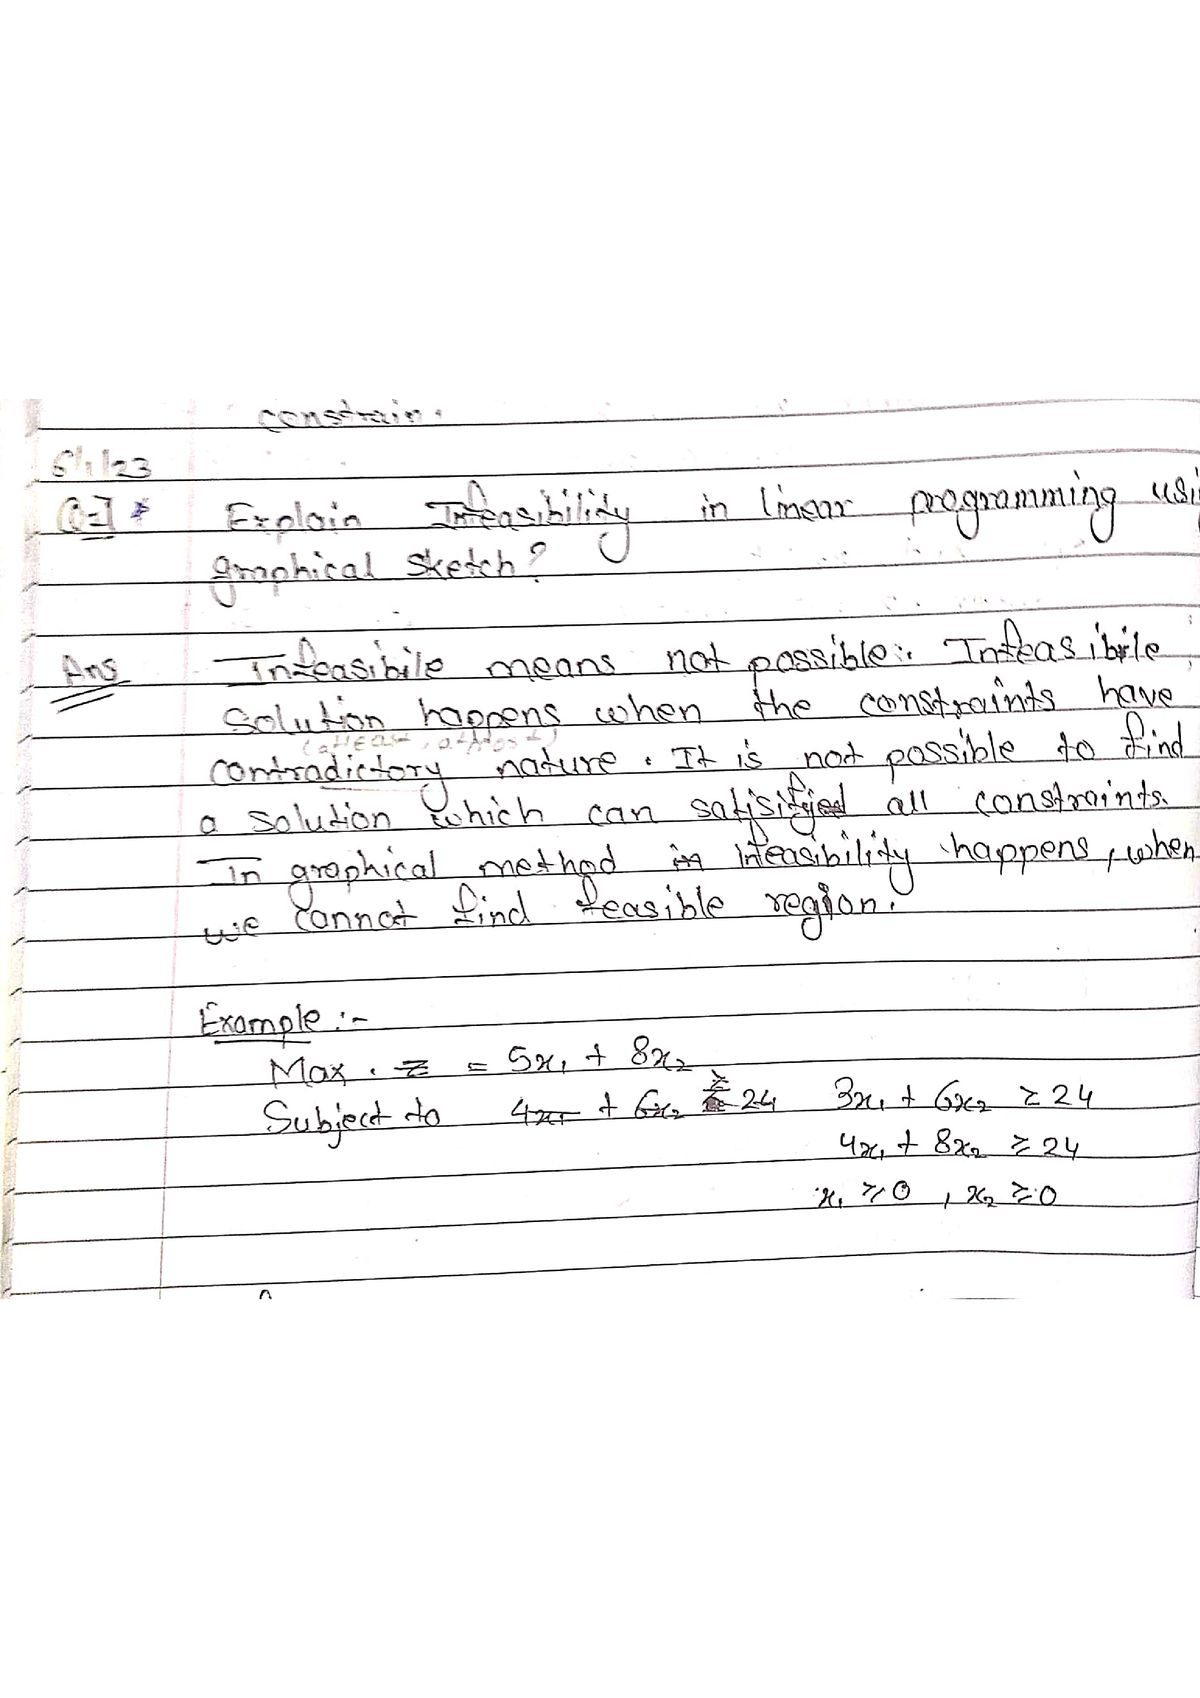 constrain.
5/1/23
Q-1 * Explain Infeasibility in linear programming usi
graphical sketch?
Ans Infeasibile means not possible:. Infeasibile
solution happens when the constraints have
(atleast, atmost)
contradictory nature. It is not possible to find
a solution which can satisified all constraints.
In graphical method in infeasibility happens, when
we cannot find feasible region.
Example :-
Max. Z = 5x₁ + 8x₂
Subject to 4x₁ + 6x₂ ≥ 24 3x₁ + 6x₂ ≥ 24
4x₁ + 8x₂ ≥ 24
x₁ ≥ 0 , x₂ ≥ 0